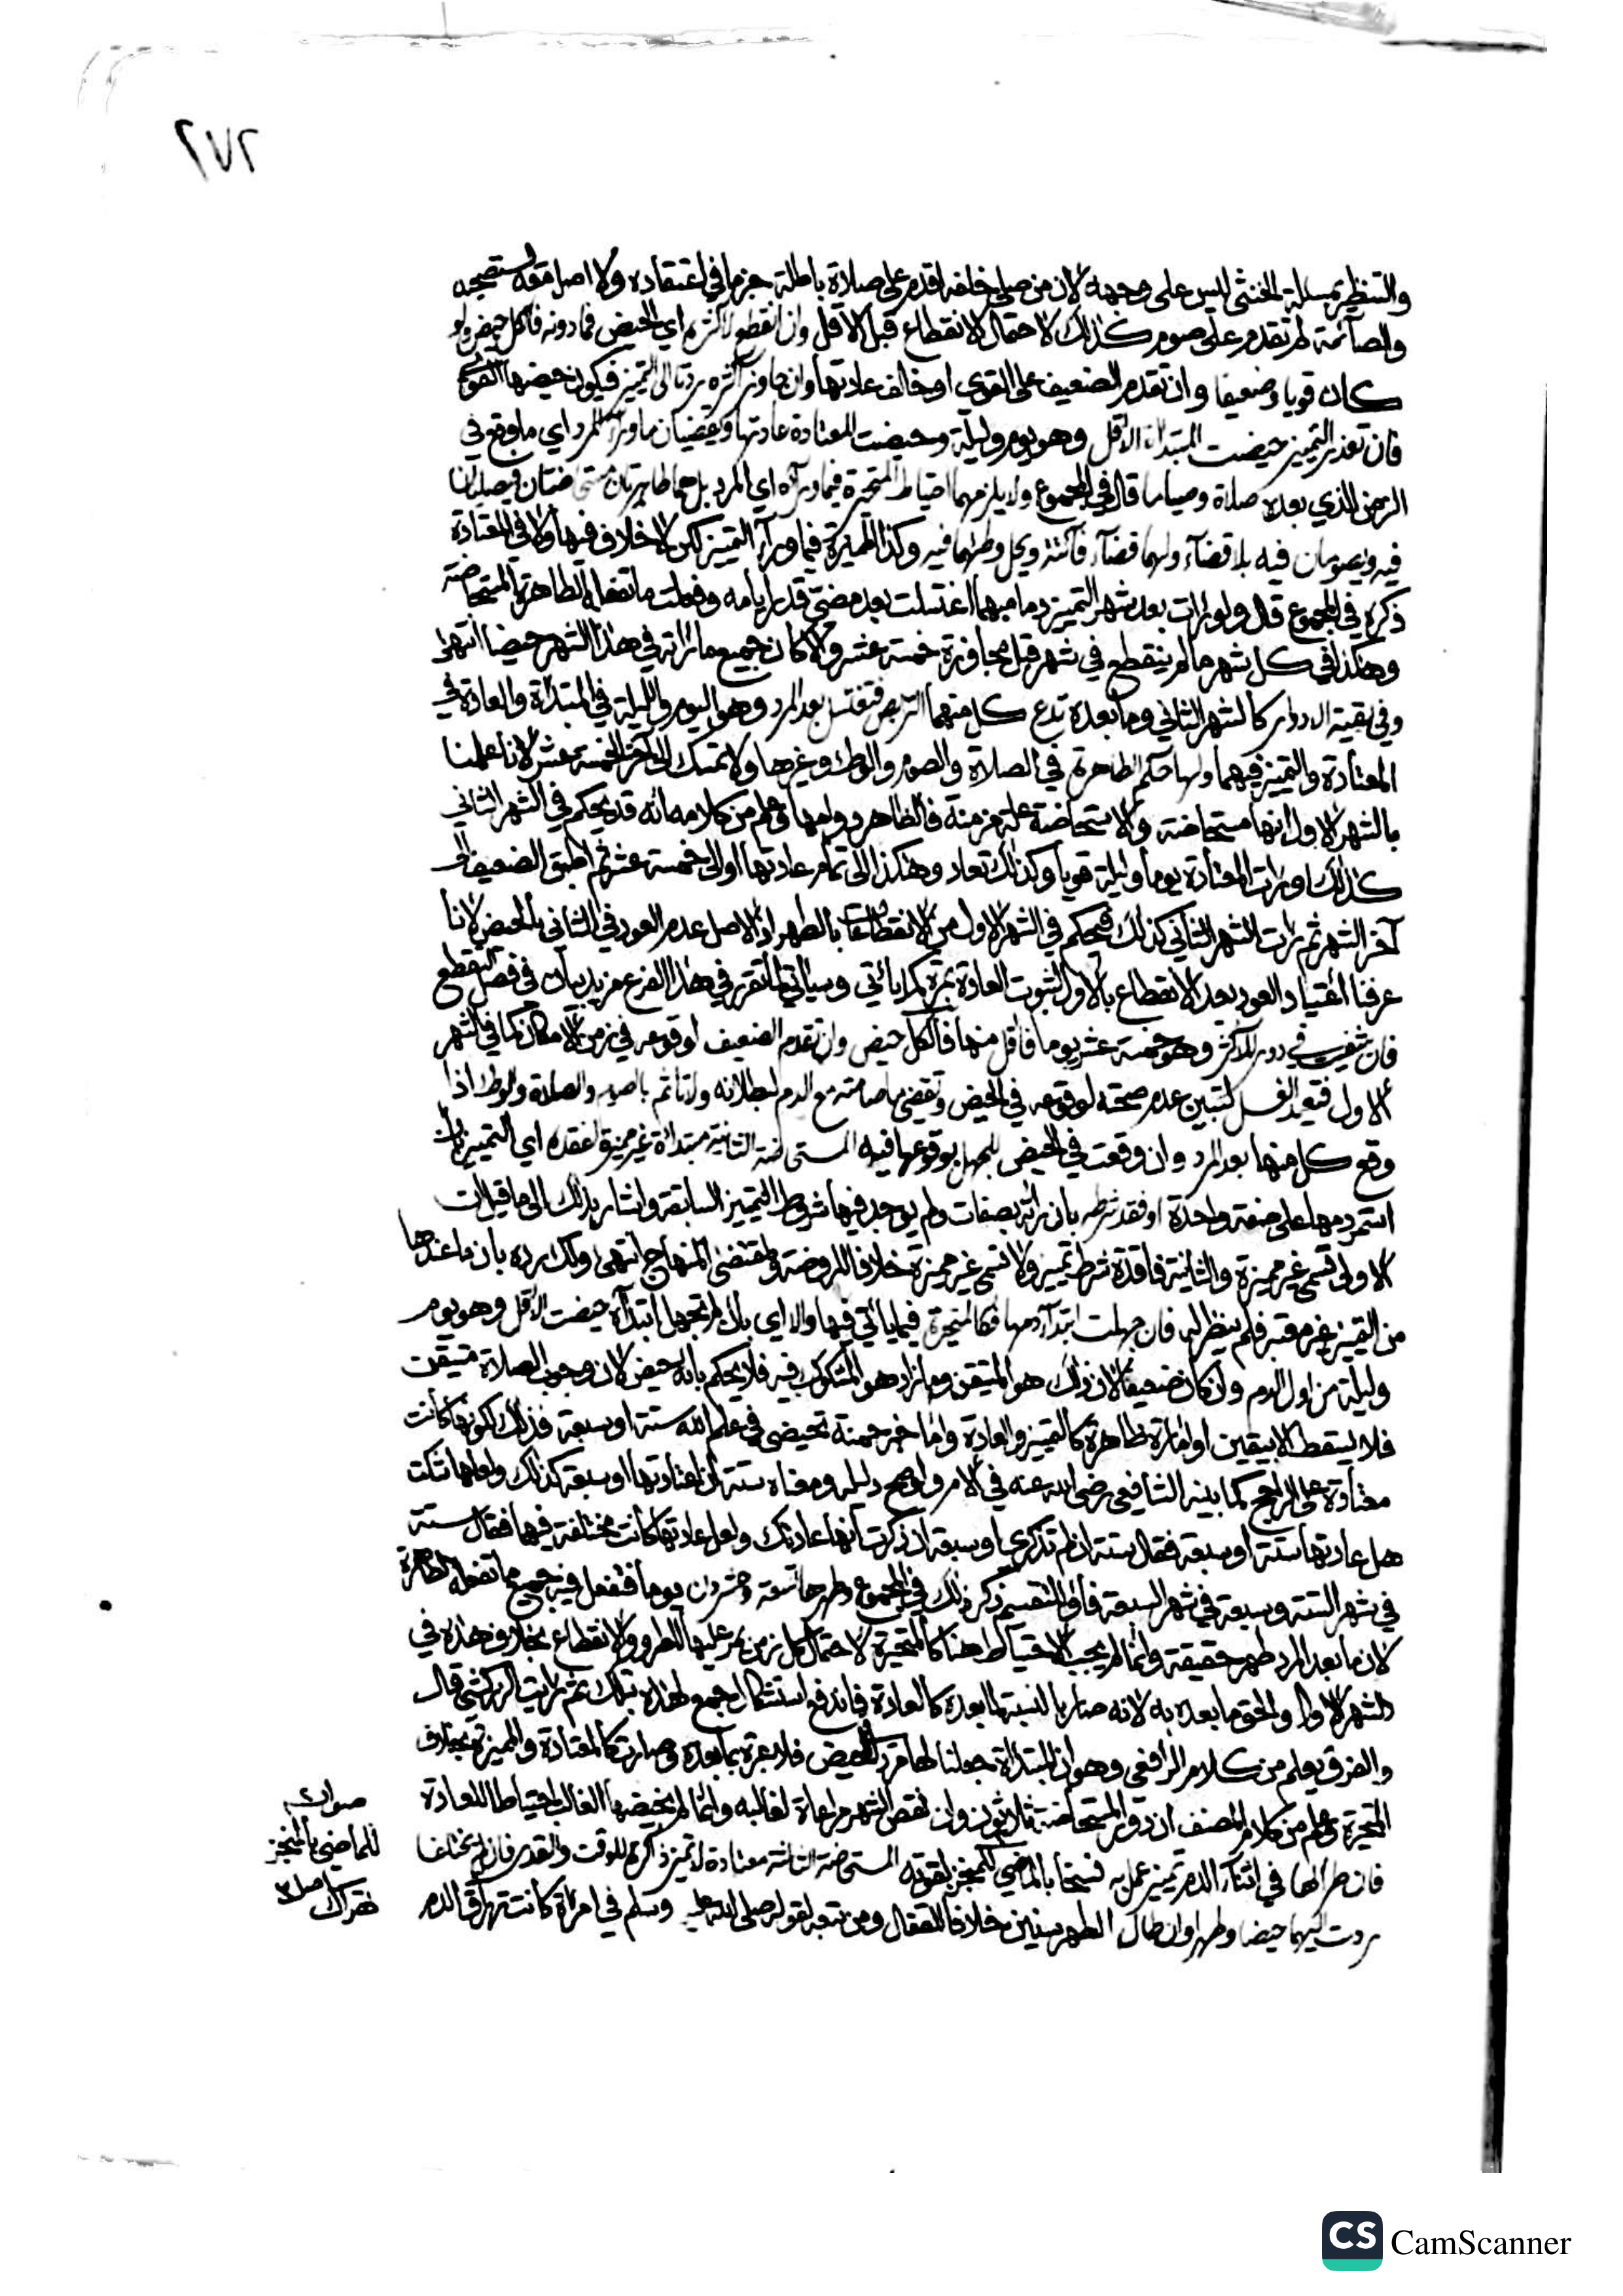 ٢٧٢
والتنظير بمسئلة الخنثى ليس على وجهه لان من صلى خلفه اقدم على صلاة باطلة جزما في اعتقاده ولا اصل معه يستصحبه
والصائمة لم تقدم على صوم كذلك لاحتمال الانقطاع قبل الاقل وان انقطع لاكثره اي الحيض فما دونه فالكل حيض ولو
كان قويا وضعيفا وان تقدم الضعيف على القوي او خالف عادتها وان جاوز اكثره ردت الى التمييز فيكون حيضها القوي
فان تعذر التمييز حيضت المبتدأة الاقل وهو يوم وليلة وحيضت المعتادة عادتها وتقضيان ما وراء المرد اي ما وقع في
الزمن الذي بعده صلاة وصياما قال في المجموع ولا يلزمهما احتياط المتحيرة فيما وراءه اي المرد بل هما طاهرتان مستحاضتان فيصليان
فيه ويصومان فيه بلا قضاء ولهما قضاء فائتة ويحل وطئهما فيه وكذا المميزة فيما وراء التمييز لكن لا خلاف فيها ولا في المعتادة
ذكره في المجموع قال ولو رات بعد شهر التمييز دما مبهما اغتسلت بعد مضي قدر ايامه وفعلت ما تفعله الطاهرة المستحاضة
وهكذا في كل شهر ما لم ينقطع في شهر قبل مجاوزة خمسة عشر والا كان جميع ما راته في هذا الشهر حيضا انتهى
وفي بقية الادوار كالشهر الثاني وما بعده تدع كل منهما التربص فتغتسل بعد المرد وهو اليوم والليلة في المبتدأة والعادة في
المعتادة والتمييز فيهما ولها حكم الطاهرة في الصلاة والصوم والوطئ وغيرها ولا تمسك الى آخر الخمسة عشر لانا علمنا
بالشهر الاول انها مستحاضة والاستحاضة علة مزمنة فالظاهر دوامها وعلم من كلامه انه قد يحكم في الشهر الثاني
كذلك او رات المعتادة يوما وليلة قويا وكذلك تعاد وهكذا الى تمام عادتها او الى خمسة عشر ثم اطبق الضعيف الى
آخر الشهر ثم رات الشهر الثاني كذلك فيحكم في الشهر الاول من الانقطاعات بالطهر اذ الاصل عدم العود وفي الثاني بالحيض لانا
عرفنا اعتياد العود بعد الانقطاع بالاول لثبوت العادة بمرة كما ياتي وسياتي لما تقرر في هذا الفرع مزيد بيان في فصل التقطع
فان شفيت في دور للاكثر وهو خمسة عشر يوما فاقل منها فالكل حيض وان تقدم الضعيف لوقوعه في زمن الامكان كما في الشهر
الاول فتعيد الغسل لتبين عدم صحته لوقوعه في الحيض وتقضي ما صامته مع الدم لبطلانه ولا تاثم بالصوم والصلاة والوطئ اذا
وقع كل منها بعد المرد وان وقعت في الحيض للجهل بوقوعها فيه المستحاضة الثانية مبتدأة غير مميزة لفقده اي التمييز بان
استمر دمها على صفة واحدة او فقد شرطه بان راته بصفات ولم يوجد فيها شروط التمييز السابقة واشار بذلك الى ما قيل ان
الاولى تسمى غير مميزة والثانية فاقدة شرط تمييز ولا تسمى غير مميزة خلافا للروضة ومقتضى المنهاج انتهى ولك رده بان ما عندها
من التمييز غير معتبر فلم ينظر له فان جهلت ابتداء دمها فكالمتحيرة فيما ياتي فيها والا اي بان لم تجهل ابتداءه حيضت الاقل وهو يوم
وليلة من اول الدم وان كان ضعيفا لان ذلك هو المتيقن وما زاد هو المشكوك فيه فلا يحكم بانه حيض لان وجوب الصلاة متيقن
فلا يسقط الا بيقين او امارة ظاهرة كالتمييز والعادة واما خبر حمنة تحيضي في علم الله ستة او سبعة فذلك لكونها كانت
معتادة على الراجح كما بينه الشافعي رضي الله عنه في الام واوضح دليله ومعناه ستة ان اعتادتها او سبعة كذلك ولعلها شكت
هل عادتها ستة او سبعة فقال ستة ان لم تذكري او سبعة ان ذكرت انها عادتك ولعل عادتها كانت مختلفة فيها فقال ستة
في شهر الستة وسبعة في شهر السبعة فاو للتقسيم ذكر ذلك في المجموع وطهرها تسعة وعشرون يوما فتفعل فيه جميع ما تفعله الطاهرة
لان ما بعد المرد طهر حقيقة وانما لم يجب الاحتياط هنا كالمتحيرة لاحتمال كل زمن يمر عليها للطرو والانقطاع بخلاف هذه في
الشهر الاول والحق ما بعده به لانه صار بالنسبة لما بعده كالعادة فاندفع استشكال جمع لهذه بتلك ثم رايت الزركشي قال
والفرق يعلم من كلام الرافعي وهو ان المبتدأة جعلنا لها مردا للحيض فلا عبرة بما بعده وصارت كالمعتادة والمميزة بخلاف
المتحيرة وعلم من كلام المصنف ان دور المستحاضة ثلاثون وان نقص الشهر مراعاة لغالبه وانما لم نحيضها الغالب احتياطا للعادة
فان طرا لها في اثناء الدم تمييز عمل به فنسخا بالماضي كالمنجز لقوته المستحاضة الثالثة معتادة لا تمييز ذاكرة للوقت والقدر فان لم يختلفا
ردت اليهما حيضا وطهرا وان طال الطهر سنين خلافا للقفال ومن تبعه لقوله صلى الله عليه وسلم في امراة كانت تهراق الدم
صوابه
للماضي بالمنجز
CS CamScanner